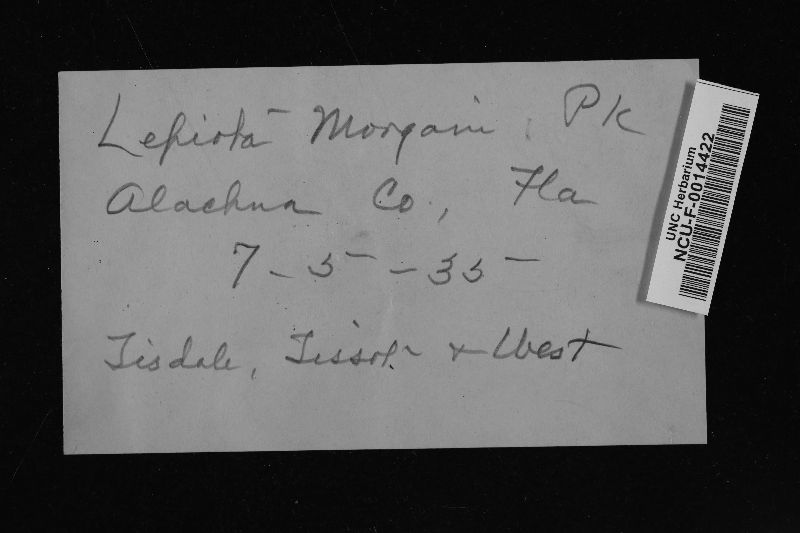 Lepiota Morgani Pk
Alachua Co., Fla
7-5-35
Tisdale, Tissot & West
UNC Herbarium
NCU-F-0014422